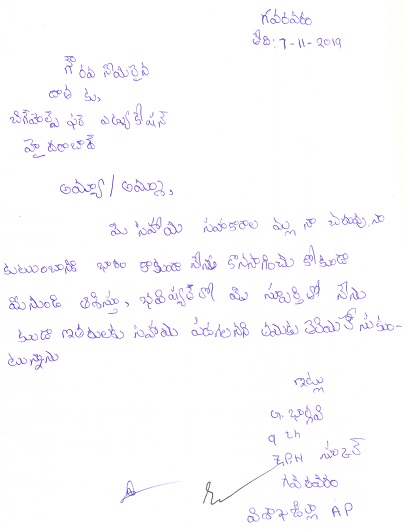 గవరవరం
తేది: 7-11-2019
గౌరవ నీయులైన
దాత కు,
బిగ్‌హెల్ప్ ఫర్ ఎడ్యుకేషన్
హైదరాబాద్
అయ్యా / అమ్మా,
మీ సహాయ సహకారాల వల్ల నా చదువు నా
కుటుంబానికి భారం కాకుండా నేను కొనసాగించు కోకుండా
మీనుండి ఆశిస్తూ, భవిష్యత్ లో మీ స్పూర్తి తో నేను
కూడా ఇతరులకు సహాయ పడగలనని
ఇట్లు
9 th
Z.P.H స్కూల్
గవరవరం
విశాఖజిల్లా AP